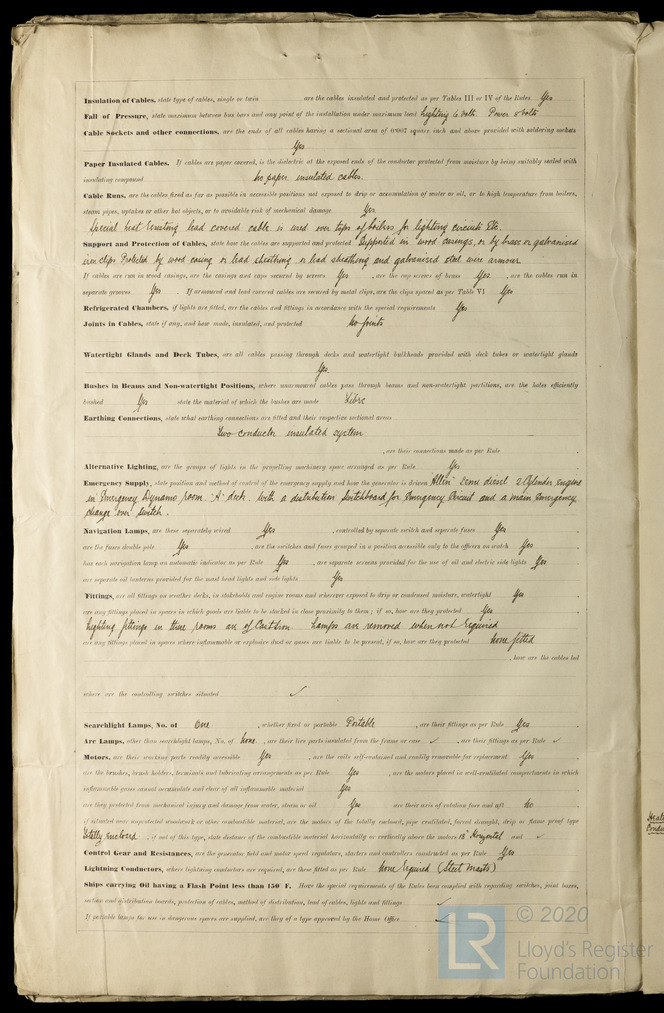 Insulation of Cables, state type of cables, single or twin are the cables insulated and protected as per Tables III or IV of the Rules Yes
Fall of Pressure, state maximum between bus bars and any point of the installation under maximum load Lighting 6 volts. Power 8 volts
Cable Sockets and other connections, are the ends of all cables having a sectional area of 0·007 square inch and above provided with soldering sockets
Yes
Paper Insulated Cables. If cables are paper covered, is the dielectric at the exposed ends of the conductor protected from moisture by being suitably sealed with
insulating compound No paper insulated cables.
Cable Runs, are the cables fixed as far as possible in accessible positions not exposed to drip or accumulation of water or oil, or to high temperature from boilers,
steam pipes, uptakes or other hot objects, or to avoidable risk of mechanical damage Yes.
Special heat resisting lead covered cable is used over tops of boilers for lighting circuits Etc.
Support and Protection of Cables, state how the cables are supported and protected Supported in wood casings, or by brass or galvanized
iron clips Protected by wood casing or lead sheathing or lead sheathing and galvanized steel wire armour
If cables are run in wood casings, are the casings and caps secured by screws Yes , are the cap screws of brass Yes , are the cables run in
separate grooves Yes . If armoured and lead covered cables are secured by metal clips, are the clips spaced as per Table VI Yes
Refrigerated Chambers, if lights are fitted, are the cables and fittings in accordance with the special requirements Yes
Joints in Cables, state if any, and how made, insulated, and protected No joints
Watertight Glands and Deck Tubes, are all cables passing through decks and watertight bulkheads provided with deck tubes or watertight glands
Yes.
Bushes in Beams and Non-watertight Positions, where unarmoured cables pass through beams and non-watertight partitions, are the holes efficiently
bushed Yes state the material of which the bushes are made Fibre
Earthing Connections, state what earthing connections are fitted and their respective sectional areas
Two conductor insulated system
, are their connections made as per Rule .
Alternative Lighting, are the groups of lights in the propelling machinery space arranged as per Rule Yes
Emergency Supply, state position and method of control of the emergency supply and how the generator is driven "Allen" diesel 2 Cylinder engine
in Emergency Dynamo room. "A" deck. With a distribution Switchboard for Emergency Circuit and a main Emergency
change over switch.
Navigation Lamps, are these separately wired Yes , controlled by separate switch and separate fuses Yes ,
are the fuses double pole Yes , are the switches and fuses grouped in a position accessible only to the officers on watch Yes ,
has each navigation lamp an automatic indicator as per Rule Yes , are separate screens provided for the use of oil and electric side lights Yes ,
are separate oil lanterns provided for the mast head lights and side lights Yes
Fittings, are all fittings on weather decks, in stokeholds and engine rooms and wherever exposed to drip or condensed moisture, watertight Yes
are any fittings placed in spaces in which goods are liable to be stacked in close proximity to them; if so, how are they protected Yes
Lighting fittings in these rooms are of Cast Iron Lamps are removed when not required
are any fittings placed in spaces where inflammable or explosive dust or gases are liable to be present, if so, how are they protected None fitted
, how are the cables led
where are the controlling switches situated ✓
Searchlight Lamps, No. of One , whether fixed or portable Portable , are their fittings as per Rule Yes
Arc Lamps, other than searchlight lamps, No. of None , are their live parts insulated from the frame or case ✓ , are their fittings as per Rule ✓
Motors, are their working parts readily accessible Yes , are the coils self-contained and readily removable for replacement Yes
are the brushes, brush holders, terminals and lubricating arrangements as per Rule Yes , are the motors placed in well-ventilated compartments in which
inflammable gases cannot accumulate and clear of all inflammable material Yes
are they protected from mechanical injury and damage from water, steam or oil Yes are their axes of rotation fore and aft No
if situated near unprotected woodwork or other combustible material, are the motors of the totally enclosed, pipe ventilated, forced draught, drip or flame proof type
Totally enclosed , if not of this type, state distance of the combustible material horizontally or vertically above the motors 18" Horizontal and ✓
Control Gear and Resistances, are the generator field and motor speed regulators, starters and controllers constructed as per Rule Yes
Lightning Conductors, where lightning conductors are required, are these fitted as per Rule None required (Steel Masts)
Ships carrying Oil having a Flash Point less than 150° F. Have the special requirements of the Rules been complied with regarding switches, joint boxes,
section and distribution boards, protection of cables, method of distribution, lead of cables, lights and fittings ✓
If portable lamps for use in dangerous spaces are supplied, are they of a type approved by the Home Office ✓
LR © 2020
Lloyd's Register
Foundation